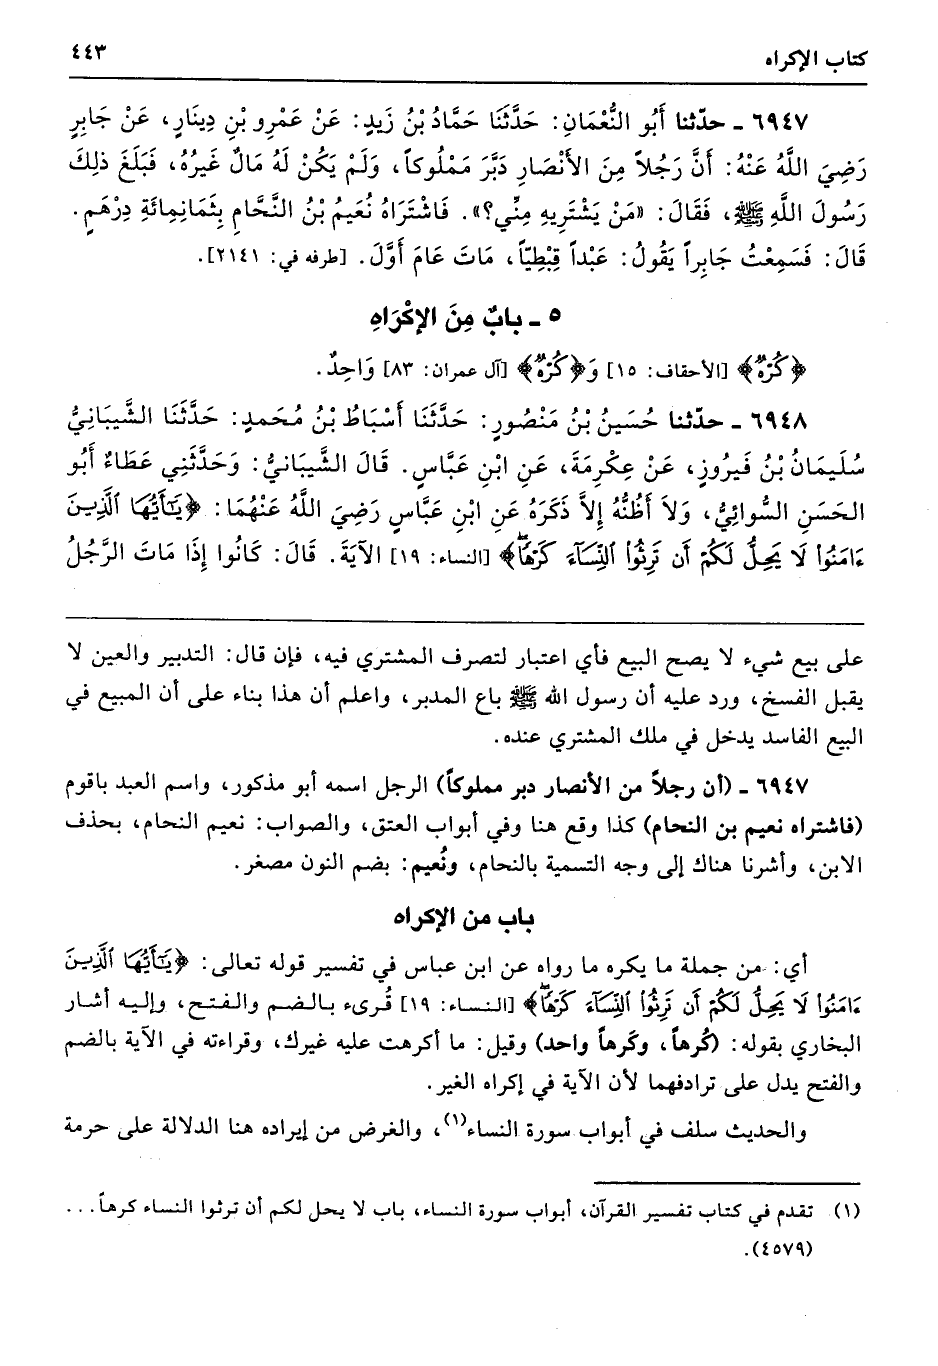 كتاب الإكراه ٤٤٣
٦٩٤٧ ـ حدّثنا أَبُو النُّعْمَانِ: حَدَّثَنَا حَمَّادُ بْنُ زَيدٍ: عَنْ عَمْرِو بْنِ دِينَارٍ، عَنْ جَابِرٍ
رَضِيَ اللَّهُ عَنْهُ: أَنَّ رَجُلاً مِنَ الأَنْصَارِ دَبَّرَ مَمْلُوكاً، وَلَمْ يَكُنْ لَهُ مَالٌ غَيرُهُ، فَبَلَغَ ذلِكَ
رَسُولَ اللَّهِ ﷺ، فَقَالَ: «مَنْ يَشْتَرِيهِ مِنِّي؟». فَاشْتَرَاهُ نُعَيمُ بْنُ النَّحَّامِ بِثَمَانِمِائَةِ دِرْهَمٍ.
قَالَ: فَسَمِعْتُ جَابِراً يَقُولُ: عَبْداً قِبْطِيّاً، مَاتَ عَامَ أَوَّلَ. [طرفه في: ٢١٤١].
٥ ـ بابٌ مِنَ الإِكْرَاهِ
﴿كُرْهٌ﴾ [الأحقاف: ١٥] وَ﴿كُرْهٌ﴾ [آل عمران: ٨٣] وَاحِدٌ.
٦٩٤٨ ـ حدّثنا حُسَينُ بْنُ مَنْصُورٍ: حَدَّثَنَا أَسْبَاطُ بْنُ مُحَمدٍ: حَدَّثَنَا الشَّيبَانِيُّ
سُلَيمَانُ بْنُ فَيرُوزٍ، عَنْ عِكْرِمَةَ، عَنِ ابْنِ عَبَّاسٍ. قَالَ الشَّيبَانِيُّ: وَحَدَّثَنِي عَطَاءٌ أَبُو
الحَسَنِ السُّوائِيُّ، وَلاَ أَظُنُّهُ إِلاَّ ذَكَرَهُ عَنِ ابْنِ عَبَّاسٍ رَضِيَ اللَّهُ عَنْهُمَا: ﴿يَٰٓأَيُّهَا ٱلَّذِينَ
ءَامَنُوا۟ لَا يَحِلُّ لَكُمْ أَن تَرِثُوا۟ ٱلنِّسَآءَ كَرْهًاۖ﴾ [النساء: ١٩] الآيَةَ. قَالَ: كَانُوا إِذَا مَاتَ الرَّجُلُ
على بيع شيء لا يصح البيع فأي اعتبار لتصرف المشتري فيه، فإن قال: التدبير والعين لا
يقبل الفسخ، ورد عليه أن رسول الله ﷺ باع المدبر، واعلم أن هذا بناء على أن المبيع في
البيع الفاسد يدخل في ملك المشتري عنده.
٦٩٤٧ ـ (أن رجلاً من الأنصار دبر مملوكاً) الرجل اسمه أبو مذكور، واسم العبد باقوم
(فاشتراه نعيم بن النحام) كذا وقع هنا وفي أبواب العتق، والصواب: نعيم النحام، بحذف
الابن، وأشرنا هناك إلى وجه التسمية بالنحام، ونُعيم: بضم النون مصغر.
باب من الإكراه
أي: من جملة ما يكره ما رواه عن ابن عباس في تفسير قوله تعالى: ﴿يَٰٓأَيُّهَا ٱلَّذِينَ
ءَامَنُوا۟ لَا يَحِلُّ لَكُمْ أَن تَرِثُوا۟ ٱلنِّسَآءَ كَرْهًاۖ﴾ [النساء: ١٩] قُرىء بالضم والفتح، وإليه أشار
البخاري بقوله: (كُرهاً، وكَرهاً واحد) وقيل: ما أكرهت عليه غيرك، وقراءته في الآية بالضم
والفتح يدل على ترادفهما لأن الآية في إكراه الغير.
والحديث سلف في أبواب سورة النساء(١)، والغرض من إيراده هنا الدلالة على حرمة
(١) تقدم في كتاب تفسير القرآن، أبواب سورة النساء، باب لا يحل لكم أن ترثوا النساء كرهاً...
(٤٥٧٩).